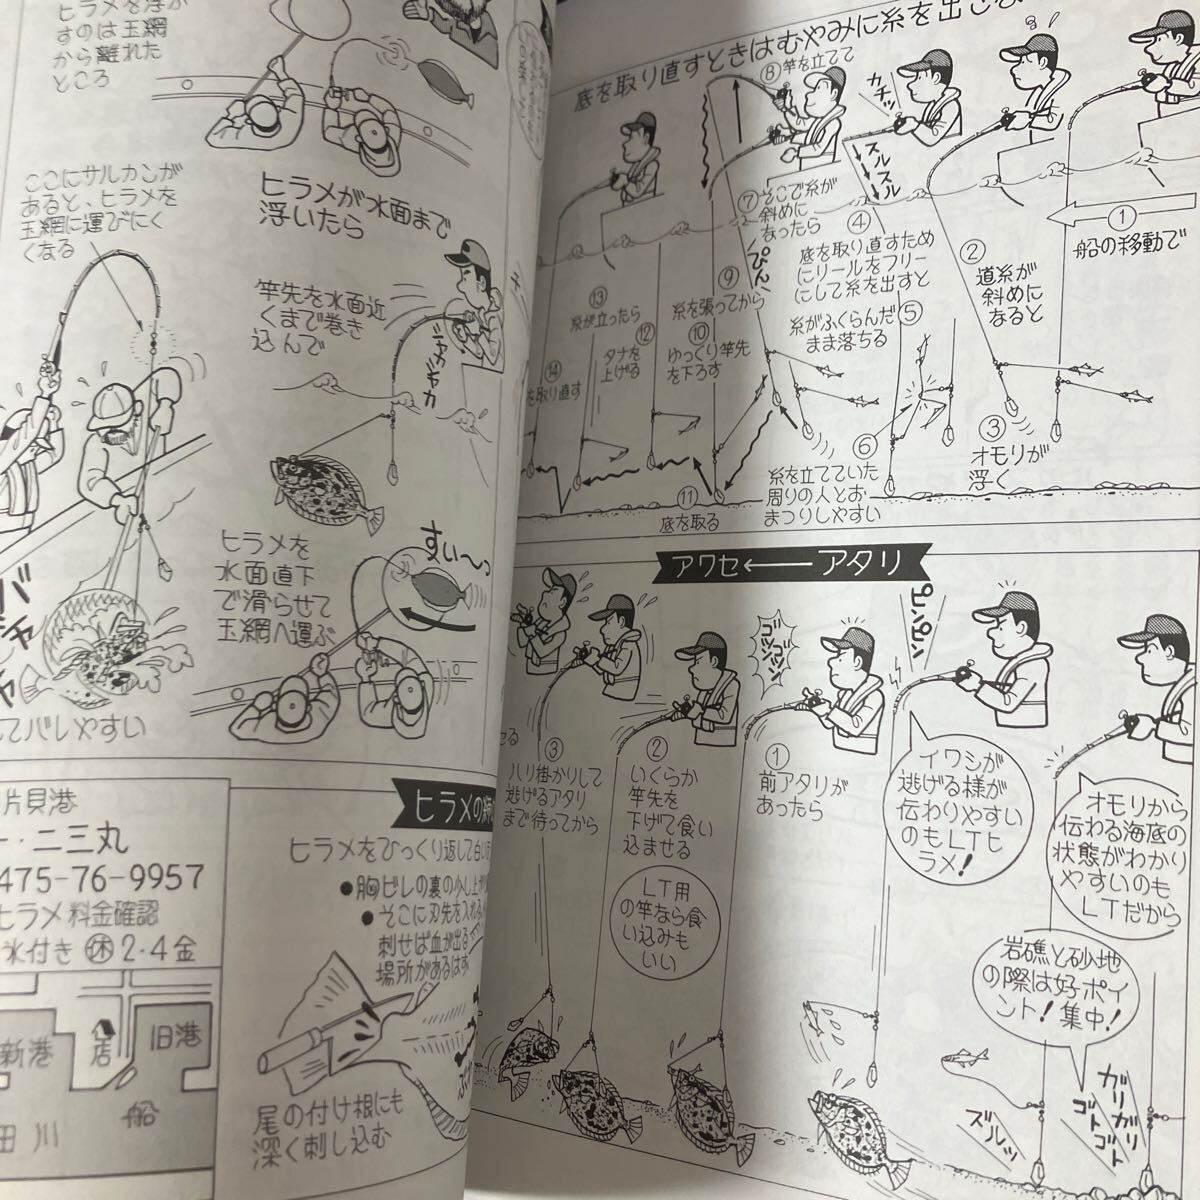 ヒラメを浮か
すのは玉網
から離れた
ところ
ここにサルカンが
あると、ヒラメを
玉網に運びにく
くなる
ヒラメが水面まで
浮いたら
竿先を水面近
くまで巻き
込んで
ニャカニャカ
ヒラメを
水面直下
で滑らせて
玉網へ運ぶ
すい〜っ
してバレやすい
片貝港
二三丸
475-76-9957
ヒラメ料金確認
氷付き 休2・4金
新港
店
旧港
船
田川
ヒラメの
ヒラメをひっくり返して白い
●胸ビレの裏の少し上
●そこに刃先を入れ
刺せば血が出る
場所があるはず
尾の付け根にも
深く刺し込む
底を取り直すときはむやみに糸を出さな
①
船の移動で
②
道糸が
斜めに
なると
③
オモリが
浮く
カチッ
スルスル
④
底を取り直すため
にリールをフリー
にして糸を出すと
糸がふくらんだ⑤
まま落ちる
⑥
糸を立てていた
周りの人とお
まつりしやすい
⑦そこで糸が
斜めに
なったら
⑧竿を立てて
ぴんに
⑨
糸を張ってから
⑩
ゆっくり竿先
を下ろす
⑪
底を取る
⑫
タナを
上げる
⑬
糸が立ったら
⑭
を取り直す
アワセ←アタリ
オモリから
伝わる海底の
状態がわかり
やすいのも
LTだから
岩礁と砂地
の際は好ポイ
ント!集中!
ガリガリ
ゴトゴト
ズルッ
ピンピン
イワシが
逃げる様が
伝わりやすい
のもLTヒ
ラメ!
ゴツゴツン
①
前アタリが
あったら
②
いくらか
竿先を
下げて食い
込ませる
LT用
の竿なら食
い込みも
いい
③
ハリ掛かりして
逃げるアタリ
まで待ってから
せる